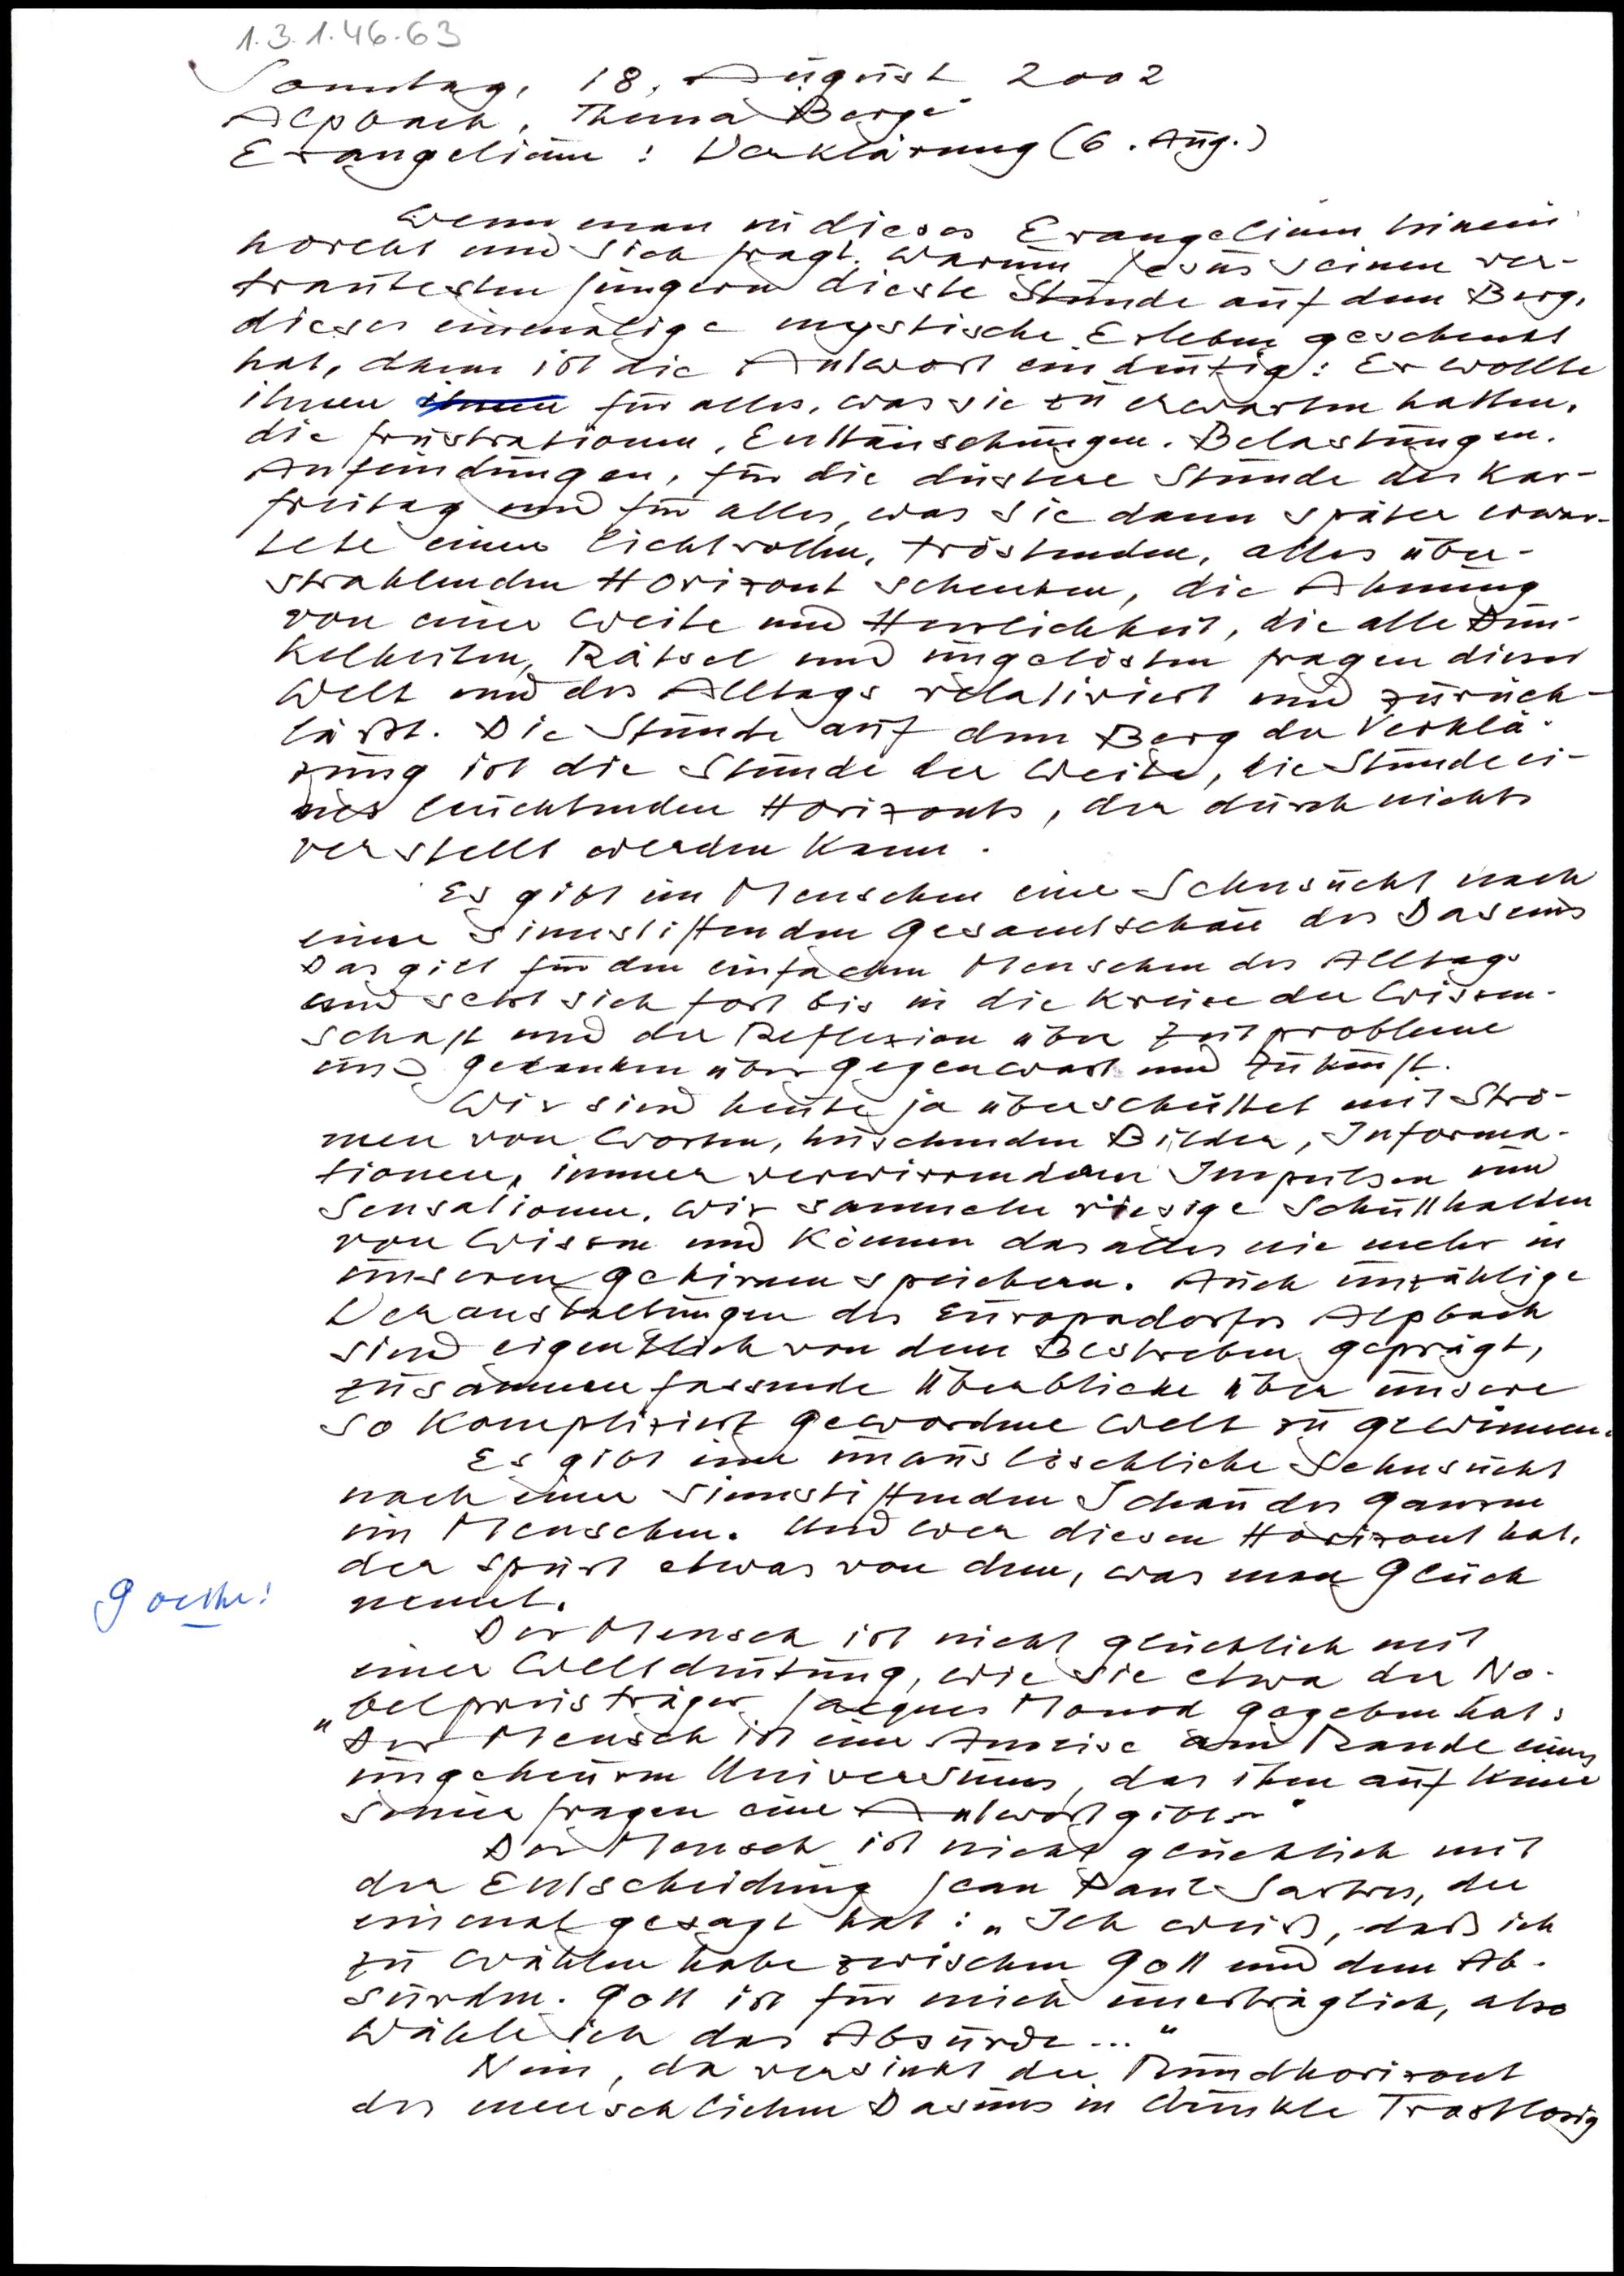 1.3.1.46.63
Sonntag, 18. August 2002
Alpbach, Thema Berge
Evangelium: Verklärung (6. Aug.)
Wenn man in dieses Evangelium hinein
horcht und sich fragt, warum Jesus seinen ver-
trautesten Jüngern dieste Stunde auf dem Berg,
dieses einmalige mystische Erleben geschenkt
hat, dann ist die Antwort eindeutig: Er wollte
ihnen ihnen für alles, was sie zu erwarten hatten,
die Frustrationen, Enttäuschungen, Belastungen,
Anfeindungen, für die düstere Stunde des Kar-
freitag und für alles, was sie dann später erwar-
tete einen lichtvollen, tröstenden, alles über-
strahlenden Horizont schenken, die Ahnung
von einer Weite und Herrlichkeit, die alle Dun-
kelheiten, Rätsel und ungelösten Fragen dieser
Welt und des Alltags relativiert und zurück-
läßt. Die Stunde auf dem Berg der Verklä-
rung ist die Stunde der Weite, die Stunde ei-
nes leuchtenden Horizonts, der durch nichts
verstellt werden kann.
Es gibt im Menschen eine Sehnsucht nach
einer sinnstiftenden Gesamtschau des Daseins
Das gilt für den einfachen Menschen des Alltags
und setzt sich fort bis in die Kreise der Wissen-
schaft und der Reflexion über Zeitprobleme
und Gedanken über Gegenwart und Zukunft.
Wir sind heute ja überschüttet mit Strö-
men von Worten, huschenden Bilder, Informa-
tionen, immer verwirrendern Impulsen und
Sensationen. Wir sammeln riesige Schutthalden
von Wissen und können das alles nie mehr in
unseren Gehirnen speichern. Auch unzählige
Veranstaltungen des Europadorfes Alpbach
sind eigentlich von dem Bestreben geprägt,
zusammenfassende Überblicke über unsere
so kompliziert gewordene Welt zu gewinnen.
Es gibt eine unauslöschliche Sehnsucht
nach einer sinnstiftenden Schau des Ganzen
im Menschen. Und wer diesen Horizont hat,
der spürt etwas von dem, was man Glück
nennt.
Goethe!
Der Mensch ist nicht glücklich mit
einer Weltdeutung, wie sie etwa der No-
belpreisträger Jacques Monod gegeben hat:
"Der Mensch ist eine Ameise am Rande eines
ungeheuren Universums, das ihm auf keine
seiner Fragen eine Antwort gibt."
Der Mensch ist nicht glücklich mit
der Entscheidung Jean Paul Sartres, der
einmal gesagt hat: „Ich weiß, daß ich
zu wählen habe zwischen Gott und dem Ab-
surden. Gott ist für mich unerträglich, also
wähle ich das Absurde..."
Nein, da versinkt der Rundhorizont
des menschlichen Daseins in dunkle Trostlosig